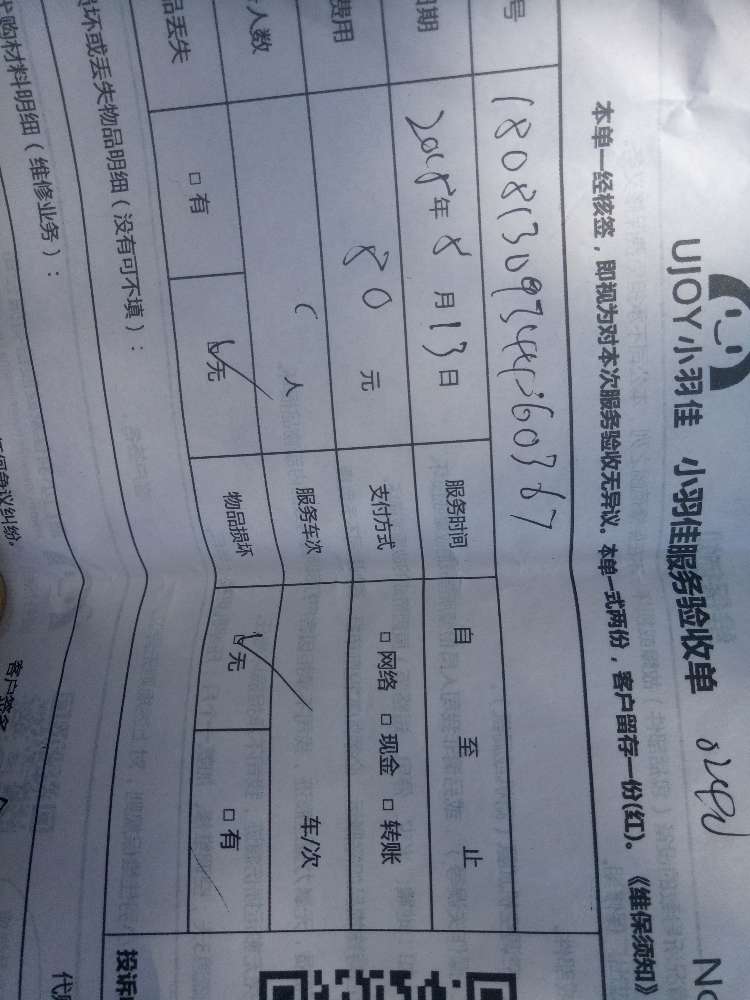 UJOY小羽佳 小羽佳服务验收单 No
本单一经核签，即视为对本次服务验收无异议。本单一式两份，客户留存一份(红)。《维保须知》
号
期 2018年8月13日 服务时间 自 至 止
费用 80元 支付方式 □网络 □现金 □转账
人数 人 服务车次 车/次
品丢失 □有 □无 物品损坏 □无 □有
坏或丢失物品明细（没有可不填）：
购材料明细（维修业务）：
投诉
代
何争议纠纷。
客户签名